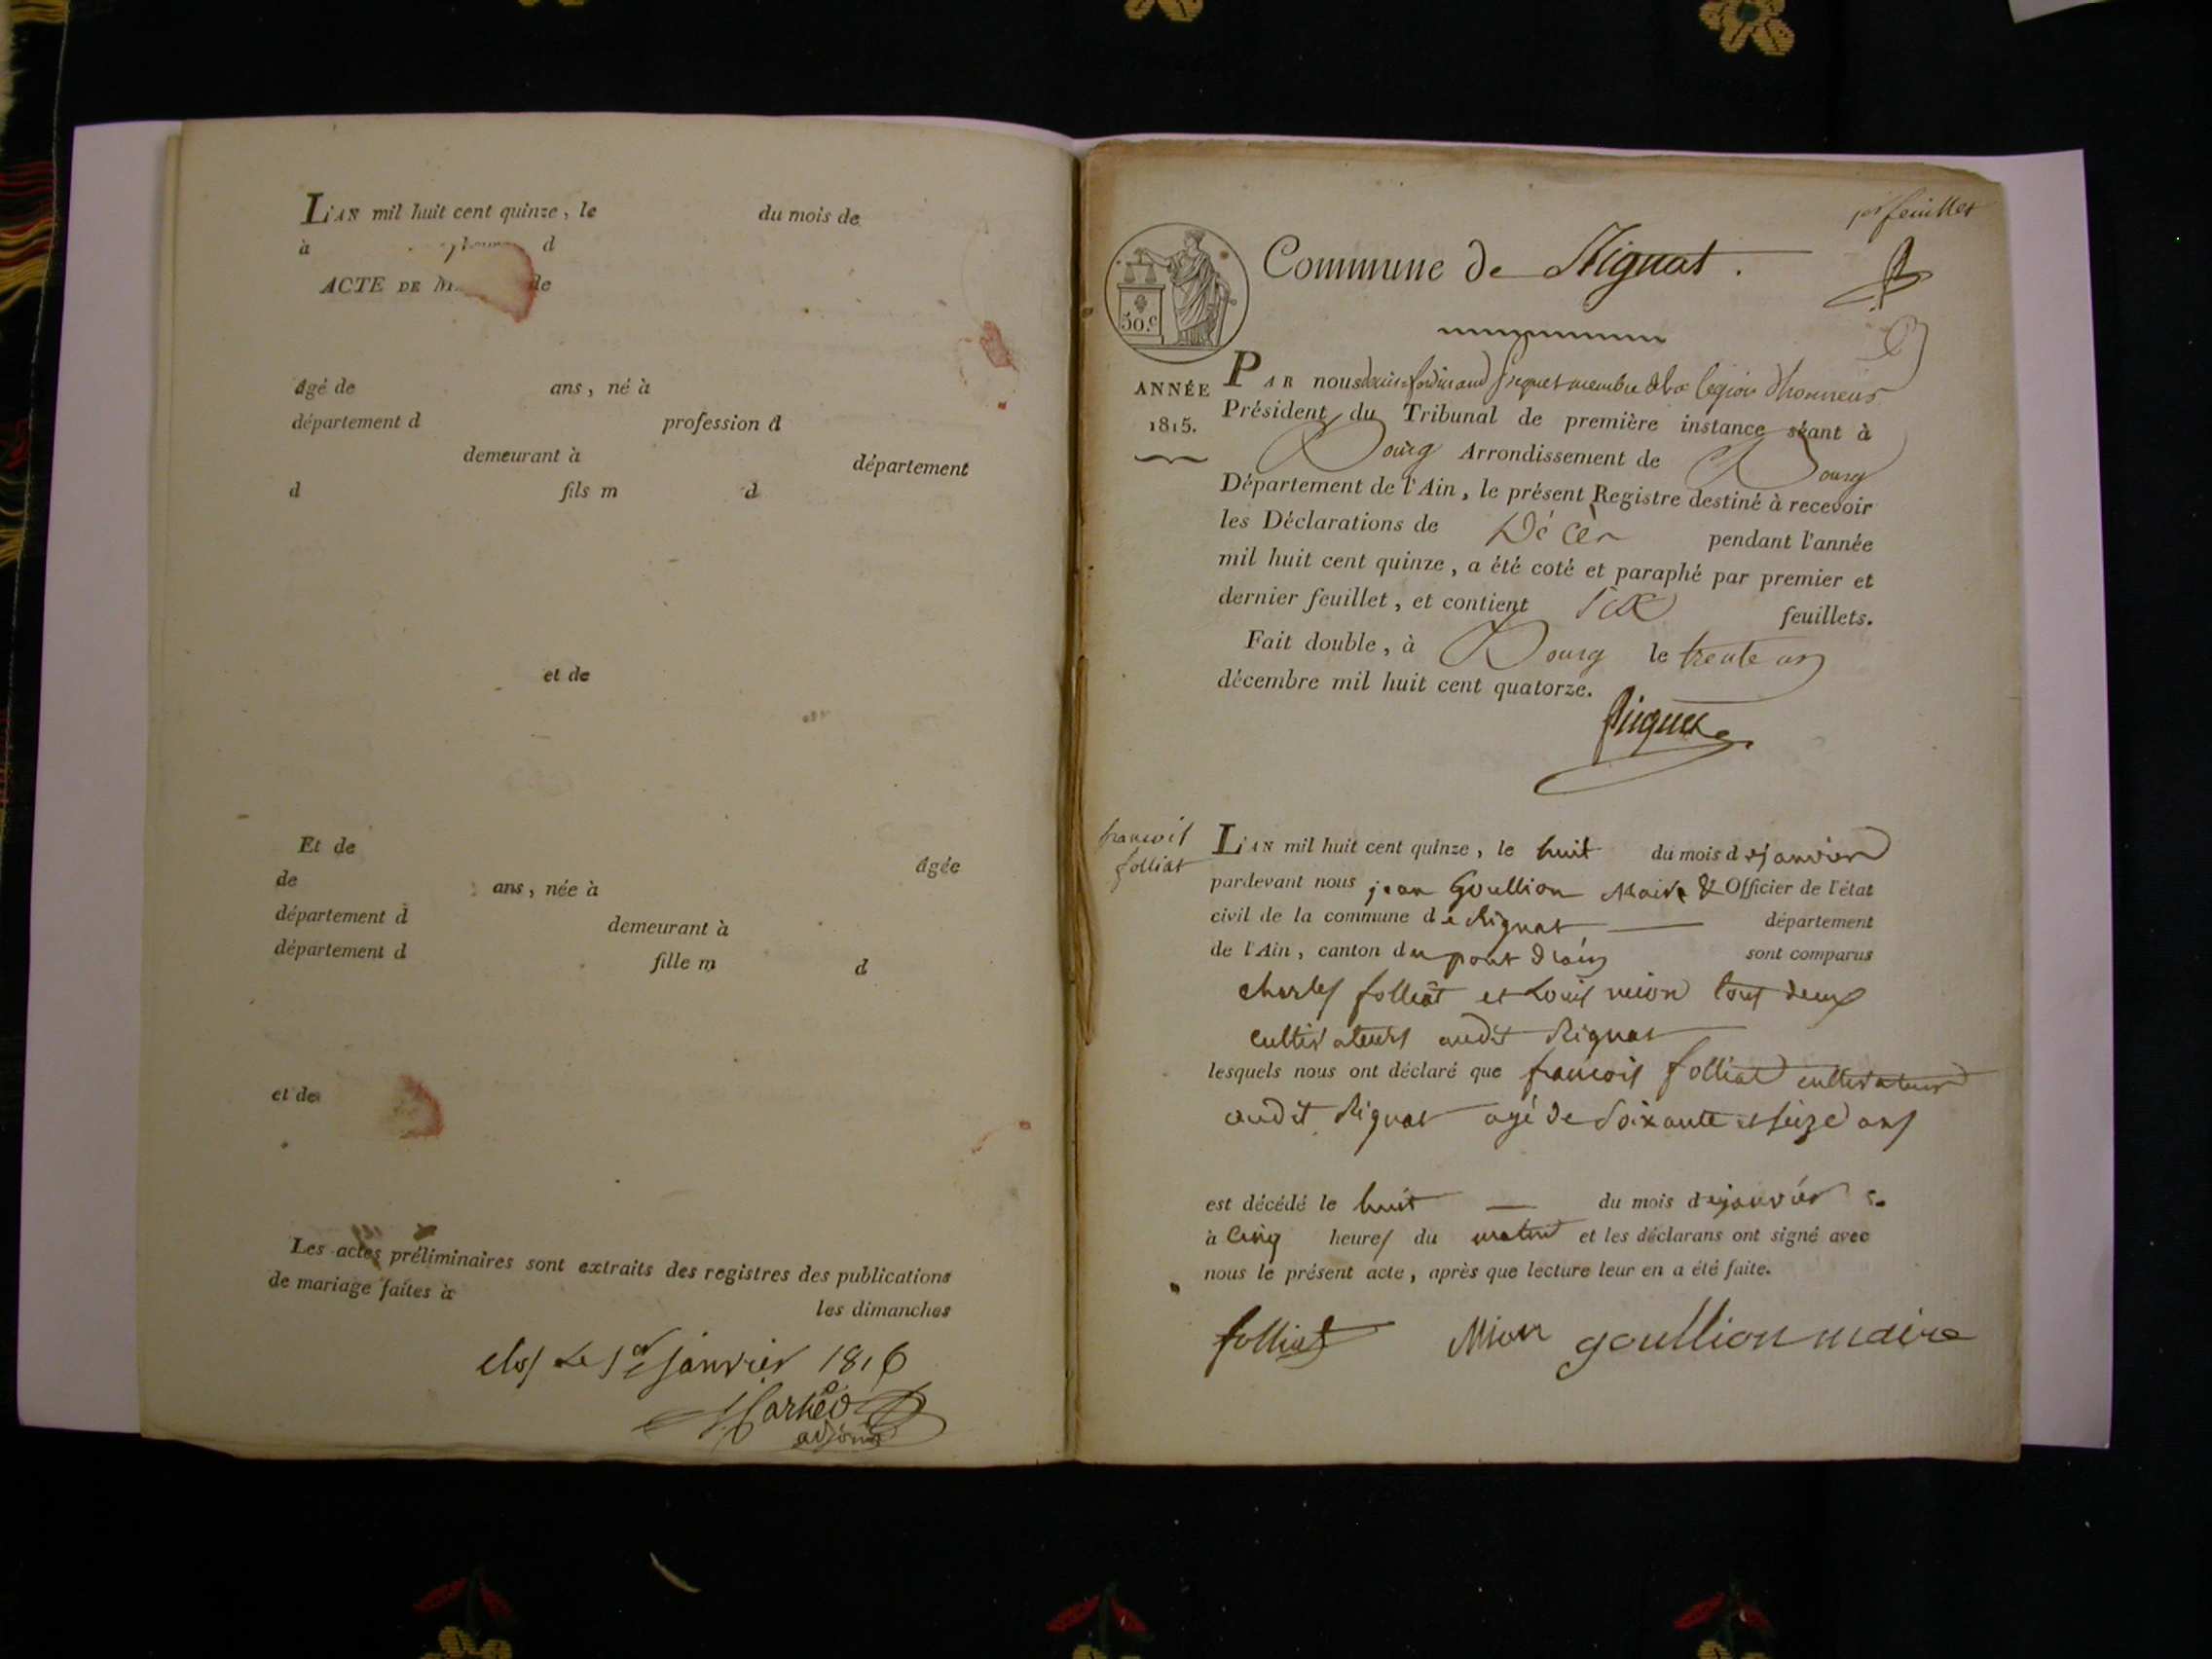 L'AN mil huit cent quinze, le du mois de
à d
ACTE DE de
âgé de ans, né à
département d profession d
demeurant à département
d fils m d
et de
Et de âgée
de ans, née à
département d demeurant à
département d fille m d
et de
Les actes préliminaires sont extraits des registres des publications
de mariage faites à
les dimanches
clos le 1er janvier 1816
adjoint
1er feuillet
Commune de Rignat.
50.c
ANNÉE
1815.
PAR nous ferdinand picquet membre de la legion d'honneur
Président du Tribunal de première instance séant à
Bourg Arrondissement de Bourg
Département de l'Ain, le présent Registre destiné à recevoir
les Déclarations de Décès pendant l'année
mil huit cent quinze, a été coté et paraphé par premier et
dernier feuillet, et contient six feuillets.
Fait double, à Bourg le trente un
décembre mil huit cent quatorze.
Picquet
francois
folliat
L'AN mil huit cent quinze, le huit du mois de janvier
pardevant nous jean Goullion Maire & Officier de l'état
civil de la commune de Rignat département
de l'Ain, canton du pont d'ain sont comparus
charles folliat et Louis mion tous deux
cultivateurs audit Rignat
lesquels nous ont déclaré que francois folliat cultivateur
audit Rignat agé de soixante et seize ans
est décédé le huit du mois de janvier
à cinq heures du matin et les déclarans ont signé avec
nous le présent acte, après que lecture leur en a été faite.
folliat Mion goullion maire